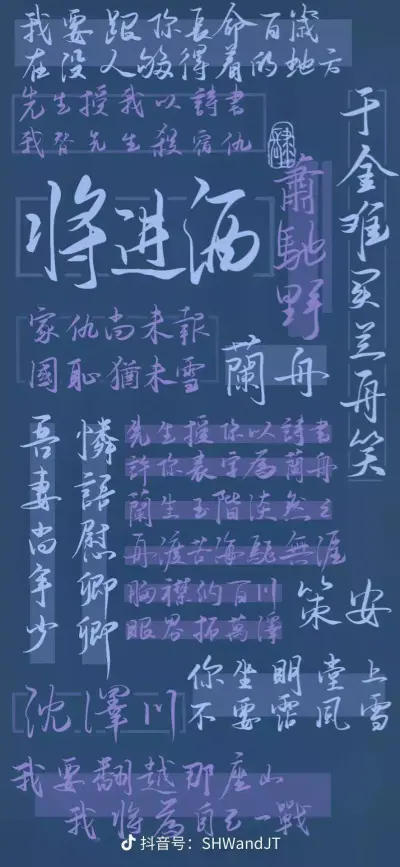 我要跟你長命百歲
在没人够得着的地方
先生授我以詩書
我替先生殺宿仇
千金难买兰舟笑
蕭馳野
将进酒
家仇尚未報
國恥猶未雪
蘭舟
吾妻尚年少
憐語慰卿卿
先生授你以詩書
許你表字為蘭舟
蘭生玉階淡然之
再渡苦海駛無涯
胸襟納百川
眼界拓萬澤
策安
你坐明堂上
不要霑風雪
沈澤川
我要翻越那座山
我將為自己一戰
抖音号：SHWandJT